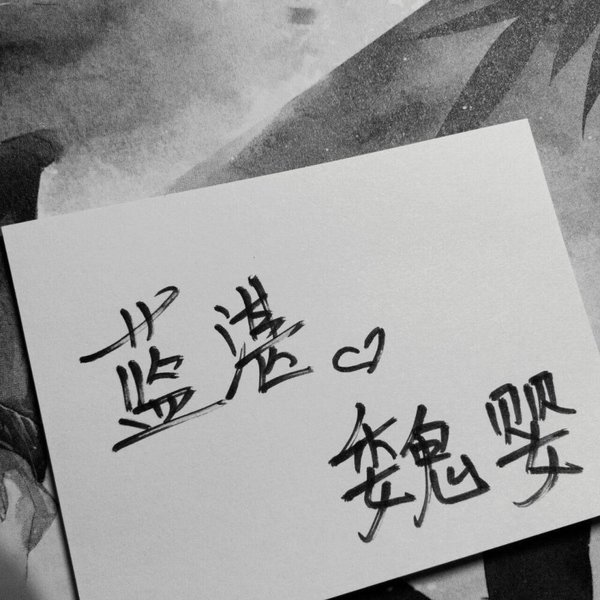 蓝湛♡
魏婴